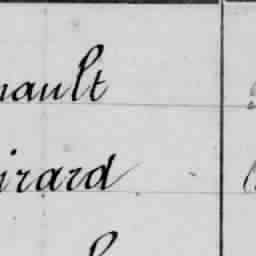 nault
irard